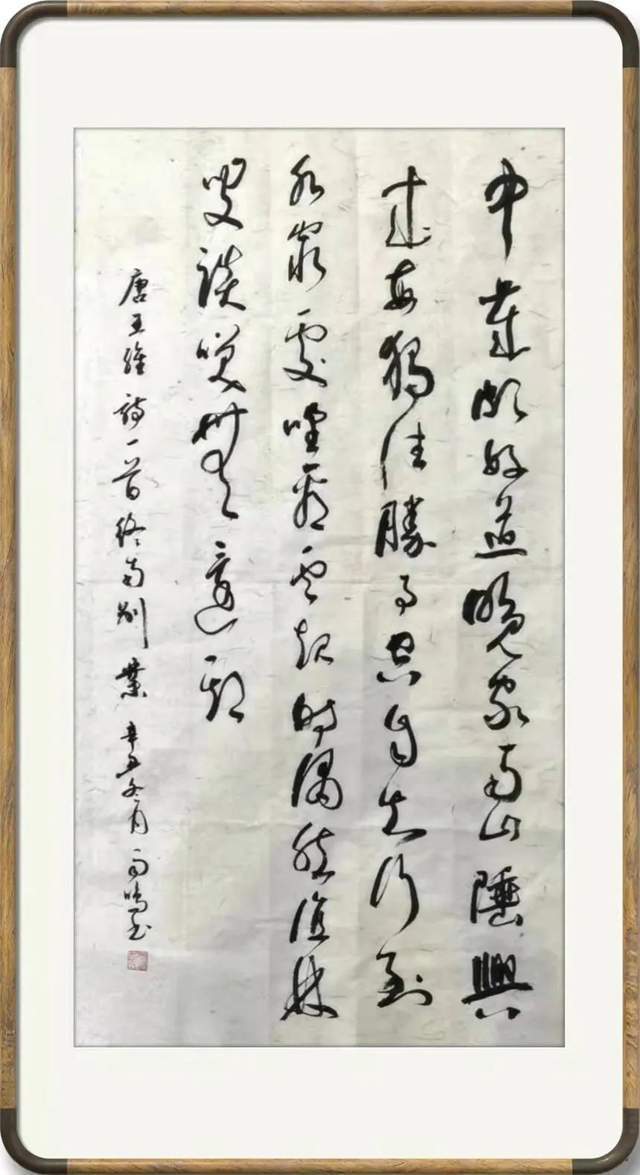 中歲頗好道晚家南山陲興
來每獨往勝事空自知行到
水窮處坐看雲起時偶然值林
叟談笑無還期
唐王維詩一首終南別業 辛丑冬月 鳴书